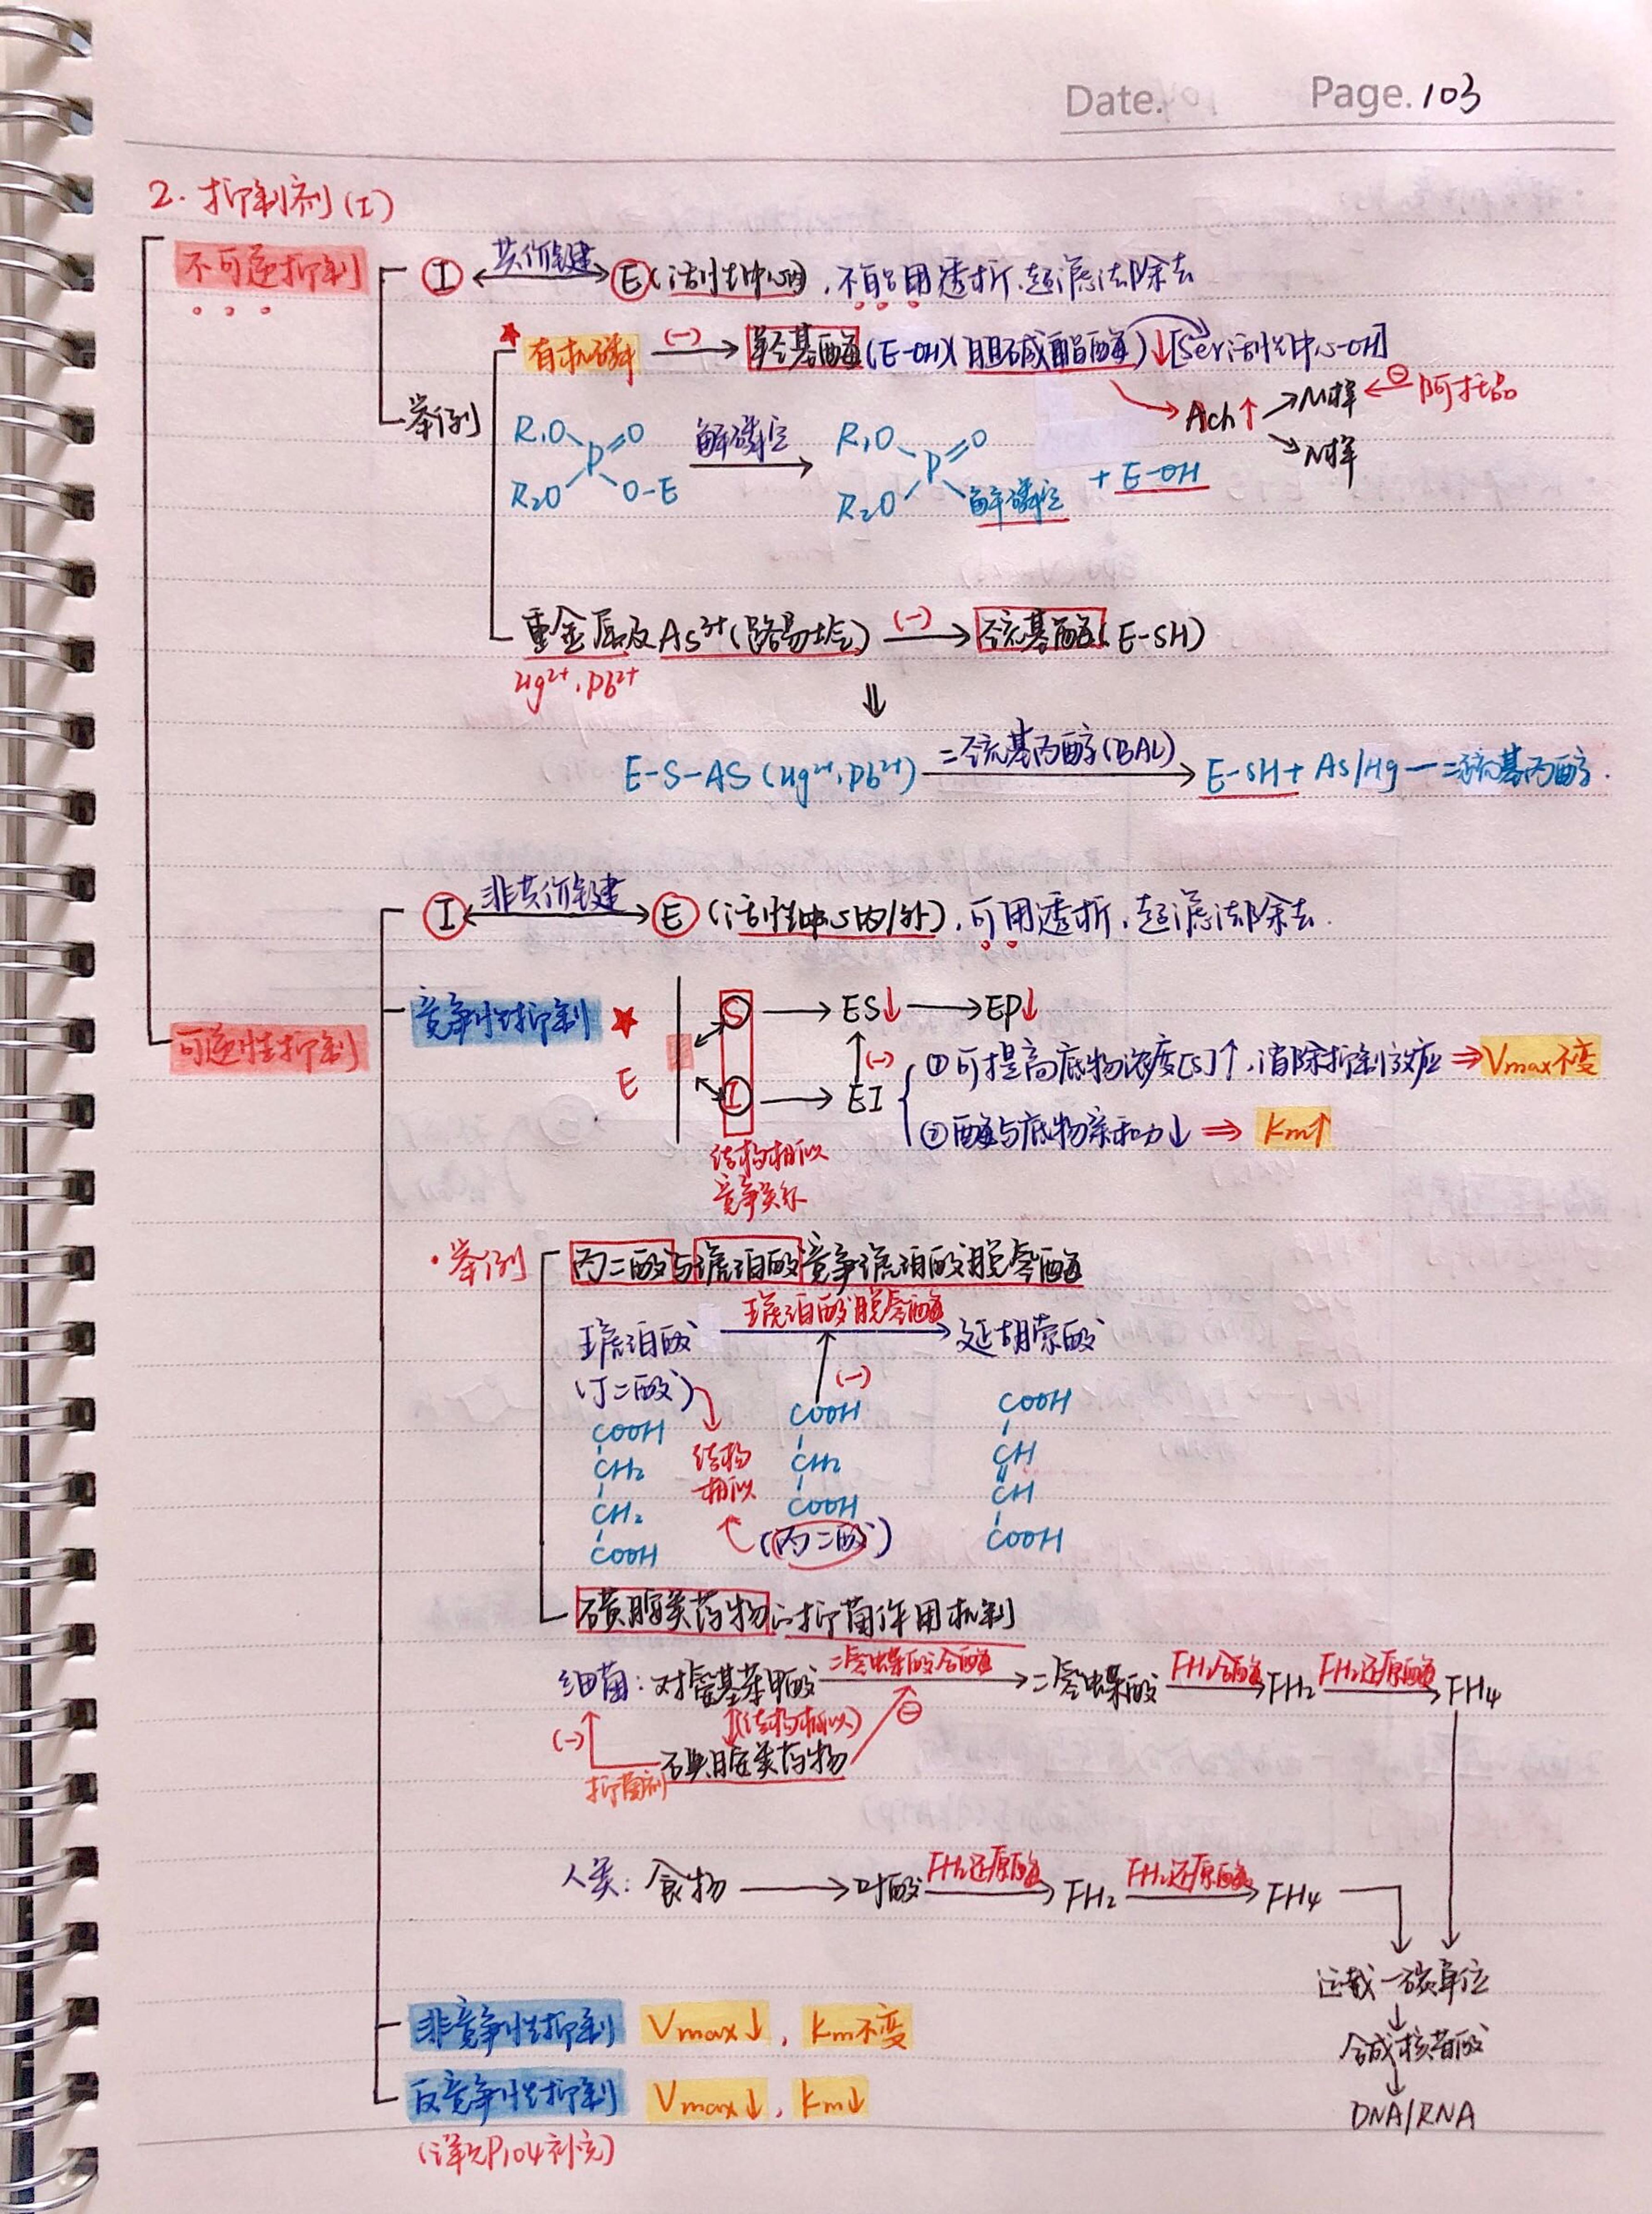 Date. Page. 103
2. 抑制剂(I)
不可逆抑制
I 共价键 E(活性中心内), 不能用透析、超滤法除去
举例
★有机磷 (-) 羟基酶(E-OH)(胆碱酯酶)↓[Ser活性中心-OH]
Ach↑ M样 ⊖ 阿托品
N样
R₁O P O 解磷定 R₁O P O
R₂O O-E R₂O 解磷定 + E-OH
重金属及As³⁺(路易士气) (-) 巯基酶(E-SH)
Hg²⁺、Pb²⁺
⇓
E-S-AS(Hg²⁺、Pb²⁺) 二巯基丙醇(BAL) E-SH + AS/Hg—二巯基丙醇.
可逆性抑制
I 非共价键 E (活性中心内/外), 可用透析、超滤法除去.
竞争性抑制 ★
E
S → ES↓ → EP↓
(-)
I → EI
①可提高底物浓度[S]↑, 消除抑制效应 ⇒ Vmax不变
②酶与底物亲和力↓ ⇒ Km↑
结构相似
竞争关系
·举例
丙二酸与琥珀酸竞争琥珀酸脱氢酶
琥珀酸 琥珀酸脱氢酶 延胡索酸
(丁二酸) (-)
COOH COOH COOH
CH₂ CH₂ CH
CH₂ COOH CH
COOH (丙二酸) COOH
结构
相似
磺胺类药物的抑菌作用机制
细菌: 对氨基苯甲酸 二氢蝶酸合酶 二氢蝶酸 FH₂合酶 FH₂ FH₂还原酶 FH₄
(-) (结构相似) ⊖
抑菌剂 磺胺类药物
人类: 食物 → 叶酸 FH₂还原酶 FH₂ FH₂还原酶 FH₄
运载一碳单位
合成核苷酸
DNA/RNA
非竞争性抑制 Vmax↓, Km不变
反竞争性抑制 Vmax↓, Km↓
(详见P104补充)